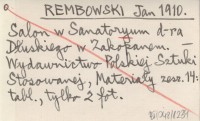 REMBOWSKI Jan 1910.
Salon w Sanatoryum d-ra
Dłuskiego w Zakopanem. –
Wydawnictwo Polskiej Sztuki
Stosowanej, Materiały zesz. 14:
tabl., tylko 2 fot.